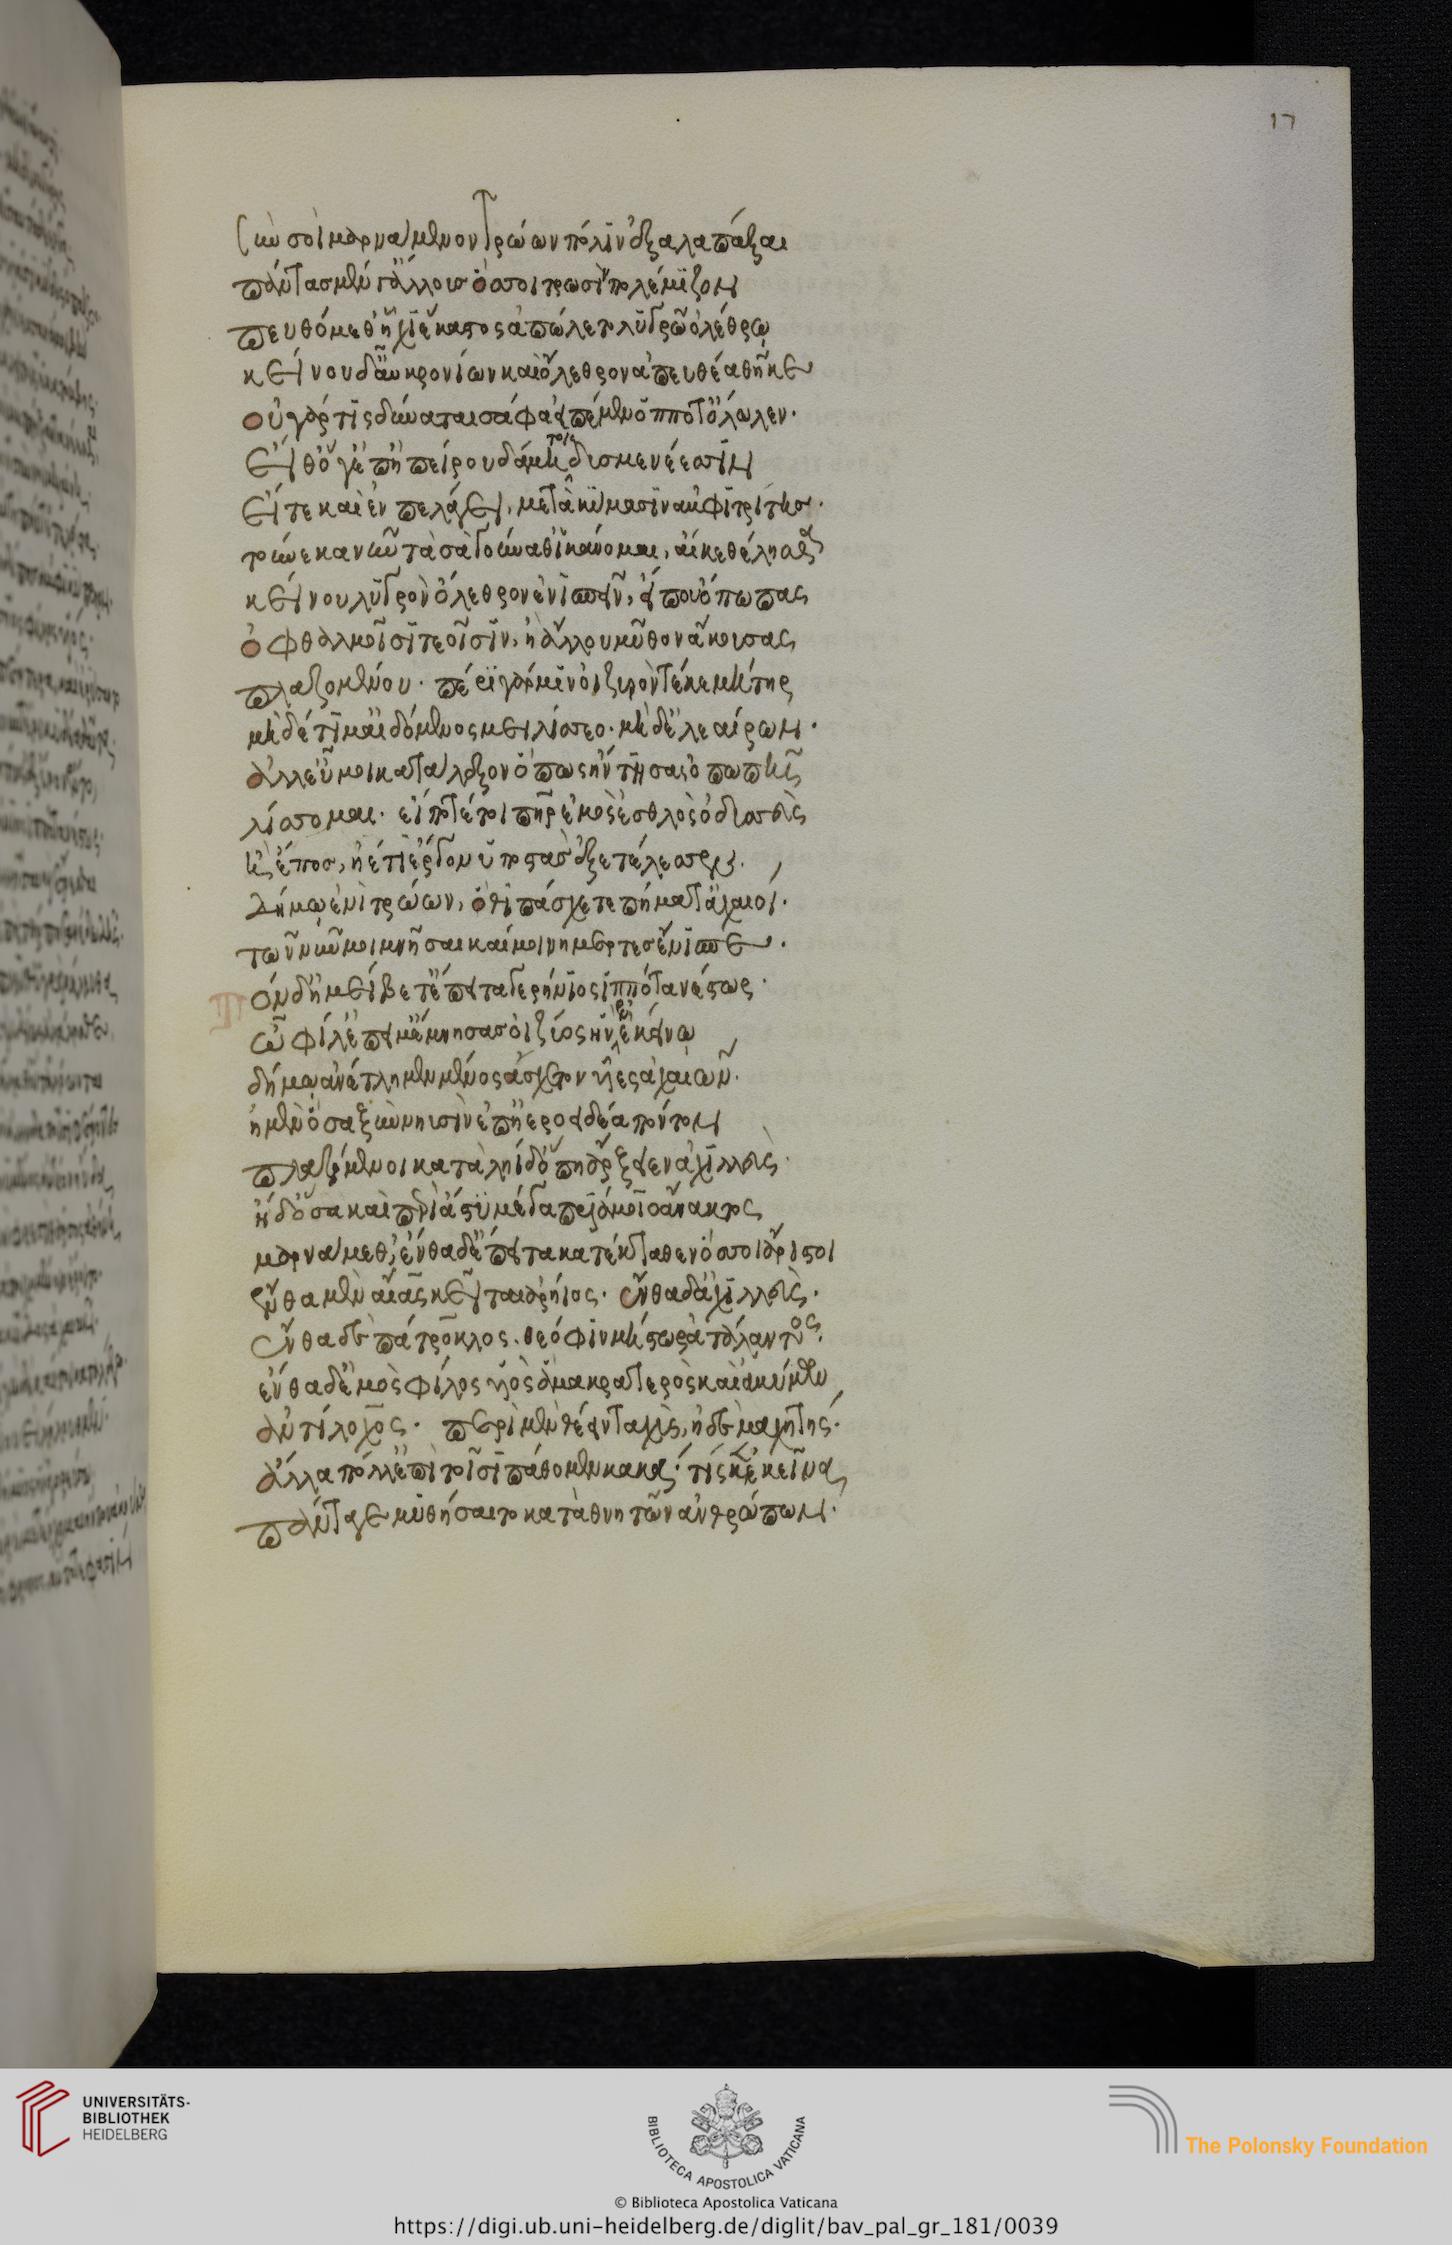 17
σὺν σοὶ μαρνάμενον τρώων πόλιν ἐξαλαπάξαι
πάντας μὲν γὰρ ἄλλους ὅσοι τρωσὶ πολέμιζον
πευθόμεθ' ἧχι ἕκαστος ἀπώλετο λυγρῶ ὀλέθρω
κείνου δ' αὖ κρονίων καὶ ὄλεθρον ἀπευθέα θῆκε
οὐ γάρ τις δύναται σάφα εἰπέμεν ὅππότ' ὄλωλεν.
εἴθ' ὅ γ' ἐπ' ἠπείρου δάμη δυσμενέεσσιν
εἴτε καὶ ἐν πελάγει, μετὰ κύμασιν ἀμφιτρίτης.
τοὔνεκα νῦν τὰ σὰ γούναθ' ἱκάνομαι, αἴ κε θέλησθα
κείνου λυγρὸν ὄλεθρον ἐνισπεῖν, εἴ που ὄπωπας
ὀφθαλμοῖσι τεοῖσιν, ἢ ἄλλου μῦθον ἄκουσας
πλαζομένου. πέρι γάρ μιν ὀιζυρὸν τέκε μήτηρ
μηδέ τί μ' αἰδόμενος μειλίσσεο. μηδ' ἐλεαίρων.
ἀλλ' εὖ μοι κατάλεξον ὅπως ἤντησας ὀπωπῆς
λίσσομαι. εἴ ποτέ τοι πατὴρ ἐμὸς ἐσθλὸς ὀδυσσεὺς
ἢ ἔπος, ἠέ τι ἔργον ὑποστὰς ἐξετέλεσσεν.
δήμω ἐνὶ τρώων, ὅθι πάσχετε πήματ' ἀχαιοί.
τῶν νῦν μοι μνῆσαι καί μοι νημερτὲς ἐνίσπε.
Τὸν δ' ἠμείβετ' ἔπειτα γερήνιος ἱππότα νέστωρ.
ὦ φίλ' ἐπεί μ' ἔμνησας ὀιζύος ἣν ἐν ἐκείνω
δήμω ἀνέτλημεν μένος ἄσχετοι υἷες ἀχαιῶν.
ἠμὲν ὅσα ξὺν νηυσὶν ἐπ' ἠεροειδέα πόντον
πλαζόμενοι κατὰ ληίδ' ὅπη ἄρξειεν ἀχιλλεὺς.
ἠδ' ὅσα καὶ περὶ ἄστυ μέγα πριάμοιο ἄνακτος
μαρνάμεθ', ἔνθα δ' ἔπειτα κατέκταθεν ὅσσοι ἄριστοι
ἔνθα μὲν αἴας κεῖται ἀρήιος. ἔνθα δ' ἀχιλλεὺς.
ἔνθα δὲ πάτροκλος. θεόφιν μήστωρ ἀτάλαντος.
ἔνθα δ' ἐμὸς φίλος υἱὸς ἅμα κρατερὸς καὶ ἀμύμων
ἀντίλοχος. περὶ μὲν θείειν ταχὺς, ἠδὲ μαχητής.
ἄλλα πόλλ' ἐπὶ τοῖσι πάθομεν κακά. τίς κεν ἐκεῖνα
πάντα γε μυθήσαιτο καταθνητῶν ἀνθρώπων.
UNIVERSITÄTS-
BIBLIOTHEK
HEIDELBERG
BIBLIOTECA APOSTOLICA VATICANA
The Polonsky Foundation
© Biblioteca Apostolica Vaticana
https://digi.ub.uni-heidelberg.de/diglit/bav_pal_gr_181/0039